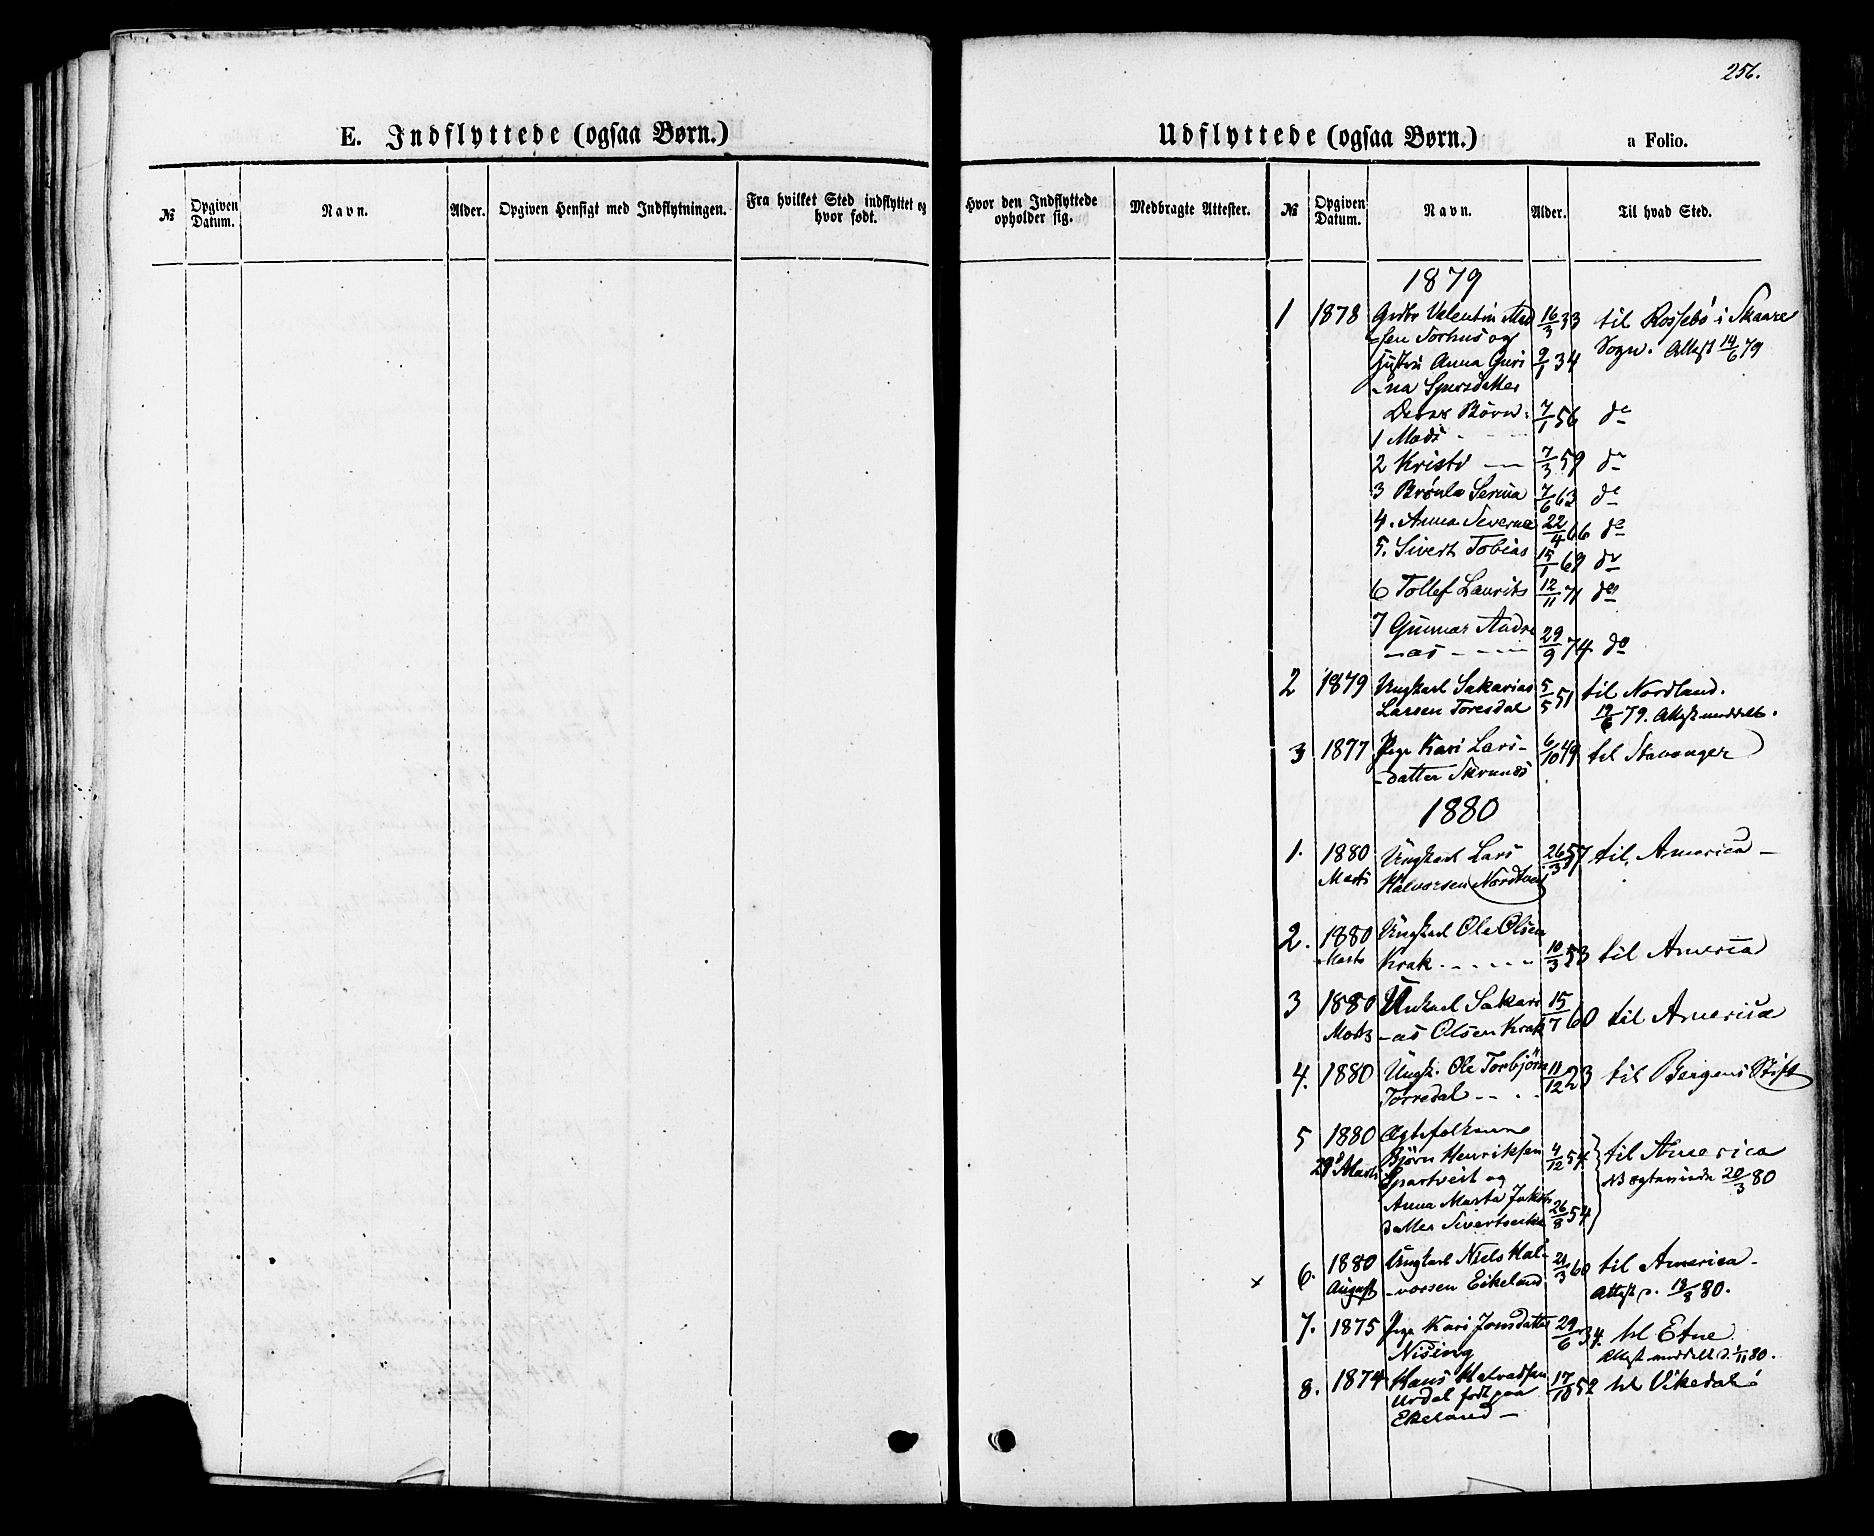 256.
E. Indflyttede (ogsaa Børn.)
Udflyttede (ogsaa Børn.)
a Folio.
№
Opgiven Datum.
Navn.
Alder.
Opgiven Hensigt med Indflytningen.
Fra hvilket Sted indflyttet og hvor født.
Hvor den Indflyttede opholder sig.
Medbragte Attester.
№
Opgiven Datum.
Navn.
Alder.
Til hvad Sted.
1879
1 1878 Valentin 16/3 33 til Rossebö i Skaare
sen Torhus og Sogn. Attest 14/6 79
Hustru Anna Guri 9/1 34
-na Sjursdatter
Deres Börn: 7/1 56 do
1 Mads
2 Kristi 7/3 59 do
3 Brönla Serina 7/6 63 do
4. Anna Severine 22/4 66 do
5. Sivert Tobias 15/1 69 do
6 Tollef Laurits 12/11 71 do
7 Gunnar Andre
-as 29/9 74 do
2 1879 Ungkarl Sakarias 5/5 51 til Nordland.
Larsen Toresdal 19/6 79. Attest meddelt.
3 1877 Pige Kari Lars- 6/10 49 til Stavanger
-datter
1880
1. 1880 Ungkarl Lars 26/3 57 til America
Marts Halvorsen Nordtveit
2. 1880 Ungkarl Ole Olsen
Marts Krak 10/3 53 til America
3 1880 Unkarl Sakari 15/7 60 til America
Marts -as Olsen Krak
4. 1880 Ungk. Ole Torbjörn 11/12 23 til Bergens Stift
Torredal
5 1880 Ægtefolkene
29 Marts Björn Henriksen 4/12 54 til America
Spartveit og 20/3 80
Anna Marta Jakobs
datter 26/8 54
6. 1880 Ungkarl Niels Hal- 21/3 60 til America
August -vorsen Eikeland Attest d. 18/8 80.
7. 1875 Pige Kari Jonsdatter 29/6 34. til Etne
Nising Attest meddelt d. 1/11 80.
8. 1874 Hans Halvadsen 17/10 52 til Vikedal
Urdal födt paa
Ekeland